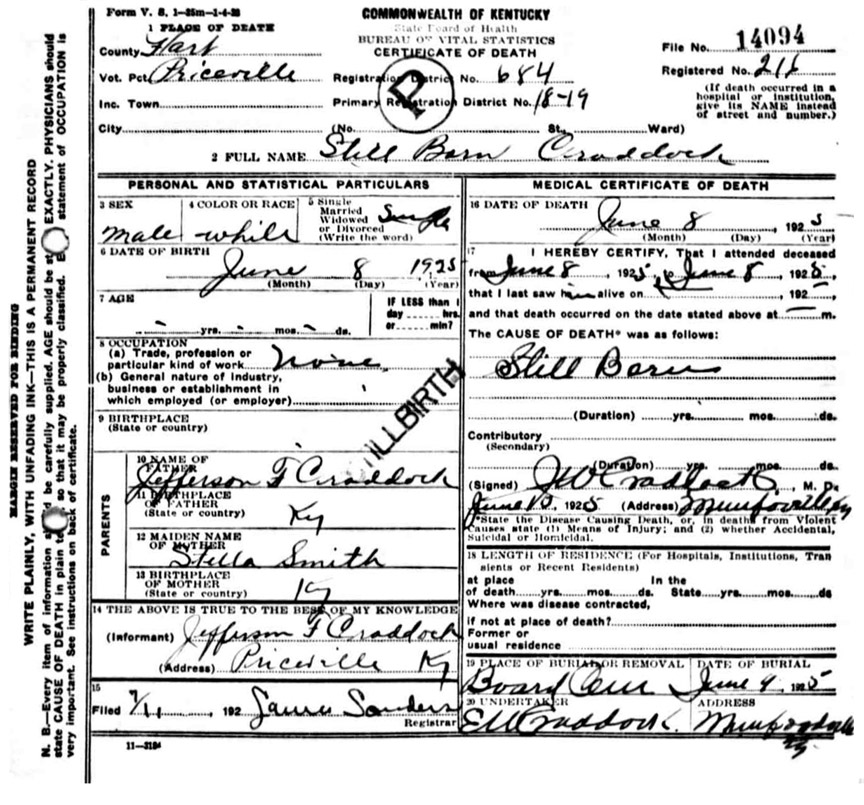 Form V. S. 1-35m-1-4-26
COMMONWEALTH OF KENTUCKY
State Board of Health
BUREAU OF VITAL STATISTICS
CERTIFICATE OF DEATH
1 PLACE OF DEATH
County Hart
File No. 14094
Vot. Pct. Priceville
Registration District No. 684
Registered No.
Inc. Town
Primary Registration District No. 18-19
(If death occurred in a hospital or institution, give its NAME instead of street and number.)
City (No. St. Ward)
P
2 FULL NAME Still Born Craddock
PERSONAL AND STATISTICAL PARTICULARS
3 SEX
male
4 COLOR OR RACE
white
5 Single
Married
Widowed
or Divorced
(Write the word)
Single
6 DATE OF BIRTH
June 8 1925
(Month) (Day) (Year)
7 AGE
yrs. mos. ds.
IF LESS than 1
day hrs.
or min?
8 OCCUPATION
(a) Trade, profession or
particular kind of work None
(b) General nature of industry,
business or establishment in
which employed (or employer)
STILLBIRTH
9 BIRTHPLACE
(State or country)
PARENTS
10 NAME OF
FATHER
Jefferson F Craddock
11 BIRTHPLACE
OF FATHER
(State or country) Ky
12 MAIDEN NAME
OF MOTHER
Stella Smith
13 BIRTHPLACE
OF MOTHER
(State or country) Ky
14 THE ABOVE IS TRUE TO THE BEST OF MY KNOWLEDGE
(Informant) Jefferson F Craddock
(Address) Priceville Ky
15
Filed 7/11, 192 Sanders
Registrar
11-3184
MEDICAL CERTIFICATE OF DEATH
16 DATE OF DEATH
June 8, 1925
(Month) (Day) (Year)
17 I HEREBY CERTIFY, That I attended deceased
from June 8, 1925, to June 8, 1925
that I last saw him alive on , 192
and that death occurred on the date stated above at m.
The CAUSE OF DEATH* was as follows:
Still Born
(Duration) yrs. mos. ds.
Contributory
(Secondary)
(Duration) yrs. mos. ds.
(Signed) J W Craddock, M. D.
June 1925 (Address) Munfordville Ky
*State the Disease Causing Death, or, in deaths from Violent
Causes state (1) Means of Injury; and (2) whether Accidental,
Suicidal or Homicidal.
18 LENGTH OF RESIDENCE (For Hospitals, Institutions, Tran
sients or Recent Residents)
at place In the
of death yrs. mos. ds. State yrs. mos. ds
Where was disease contracted,
if not at place of death?
Former or
usual residence
19 PLACE OF BURIAL OR REMOVAL
Board Cem
DATE OF BURIAL
June 9 1925
20 UNDERTAKER
E W Craddock.
ADDRESS
Munfordville
Ky
MARGIN RESERVED FOR BINDING
WRITE PLAINLY, WITH UNFADING INK—THIS IS A PERMANENT RECORD
N. B.—Every item of information should be carefully supplied. AGE should be stated EXACTLY. PHYSICIANS should
state CAUSE OF DEATH in plain terms so that it may be properly classified. statement of OCCUPATION is
very important. See instructions on back of certificate.